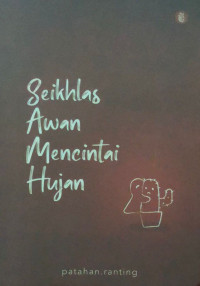 Seikhlas
Awan
Mencintai
Hujan
patahan.ranting